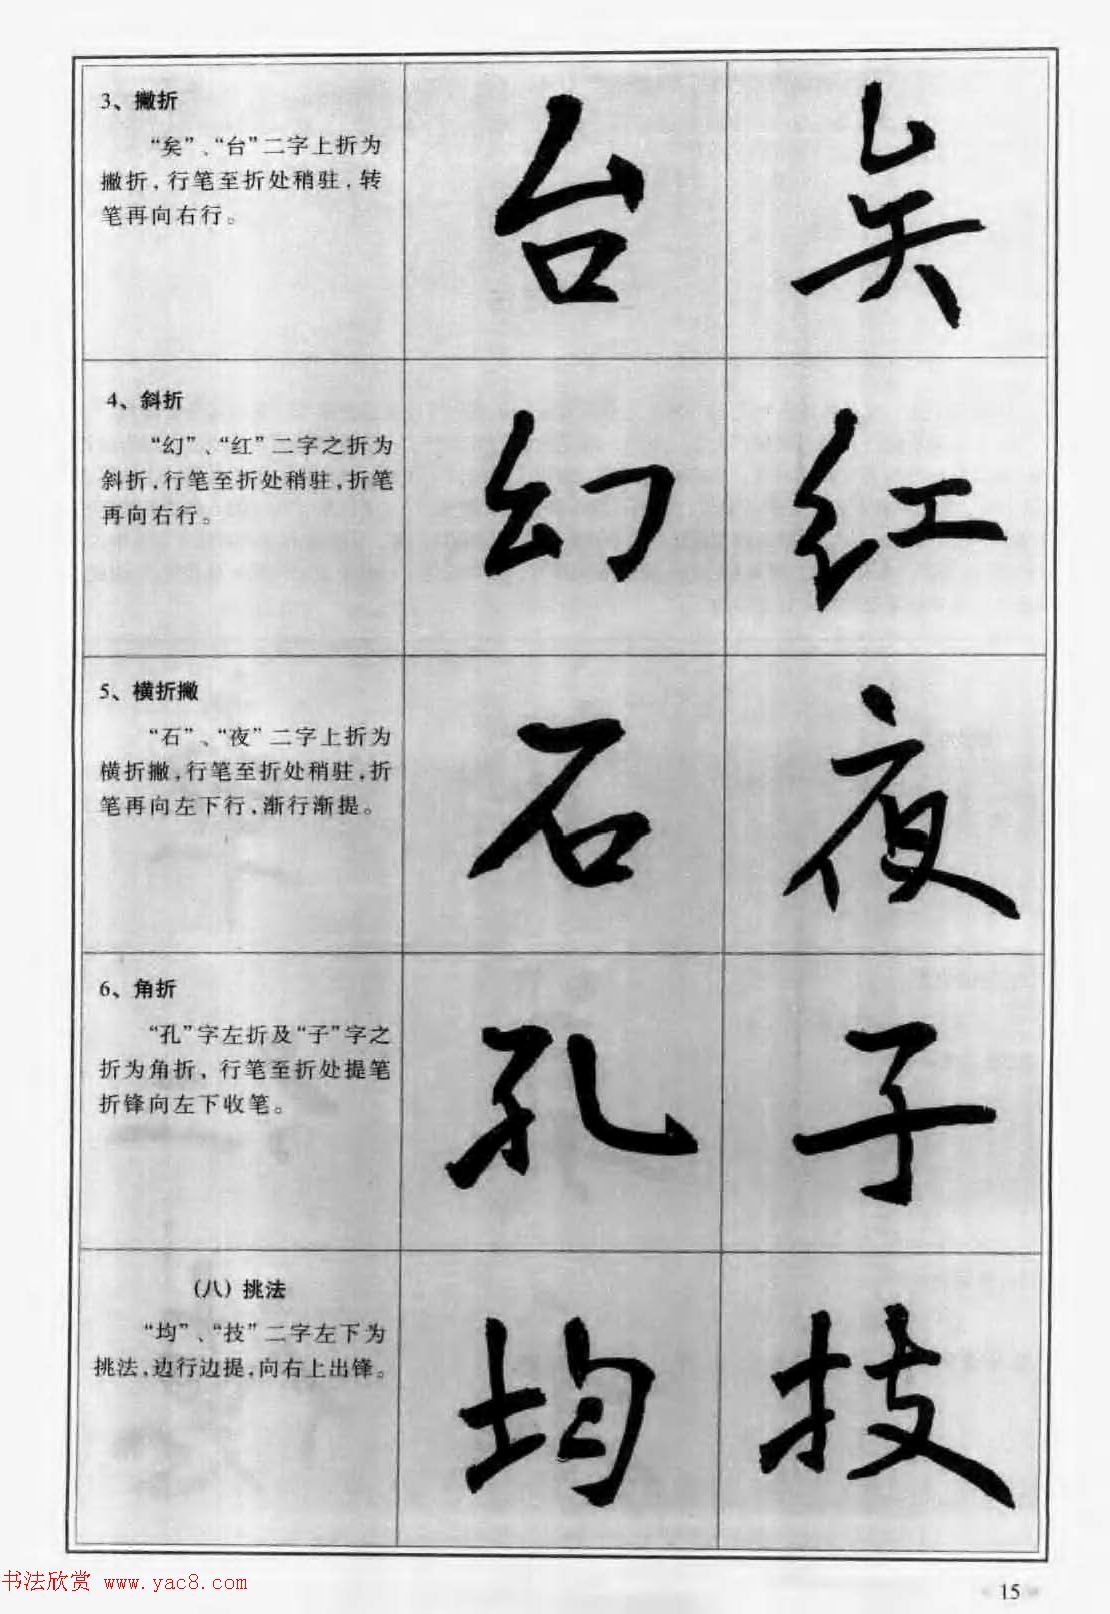 3、撇折
“矣”、“台”二字上折为
撇折，行笔至折处稍驻，转
笔再向右行。
台 矣
4、斜折
“幻”、“红”二字之折为
斜折，行笔至折处稍驻，折笔
再向右行。
幻 红
5、横折撇
“石”、“夜”二字上折为
横折撇，行笔至折处稍驻，折
笔再向左下行，渐行渐提。
石 夜
6、角折
“孔”字左折及“子”字之
折为角折，行笔至折处提笔
折锋向左下收笔。
孔 子
（八）挑法
“均”、“技”二字左下为
挑法，边行边提，向右上出锋。
均 技
书法欣赏 www.yac8.com
15